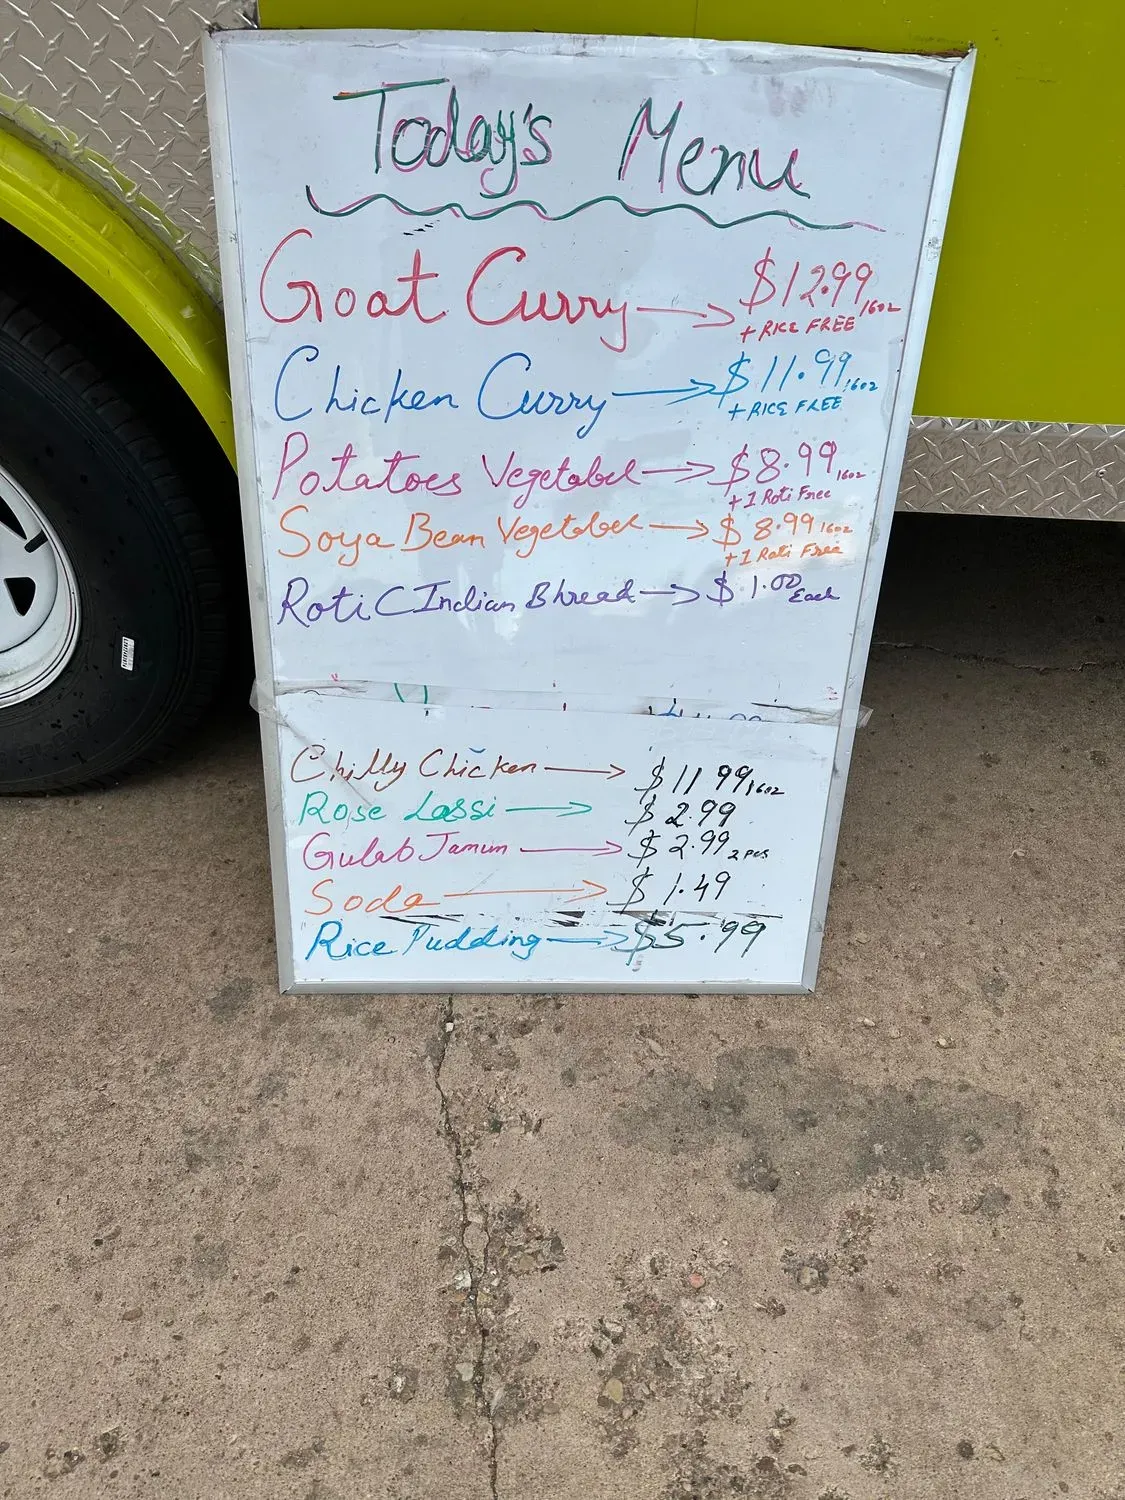 Today's Menu
Goat Curry → $12.99 16oz
+ RICE FREE
Chicken Curry → $11.99 16oz
+ RICE FREE
Potatoes Vegetabel → $8.99 16oz
+ 1 Roti Free
Soya Bean Vegetabel → $8.99 16oz
+ 1 Roti Free
Roti C Indian Bhread → $1.00 Each
Chilly Chicken → $11 99 16oz
Rose Lassi → $2.99
Gulab Jamun → $2.99 2 pcs
Soda → $1.49
Rice Pudding → $5.99